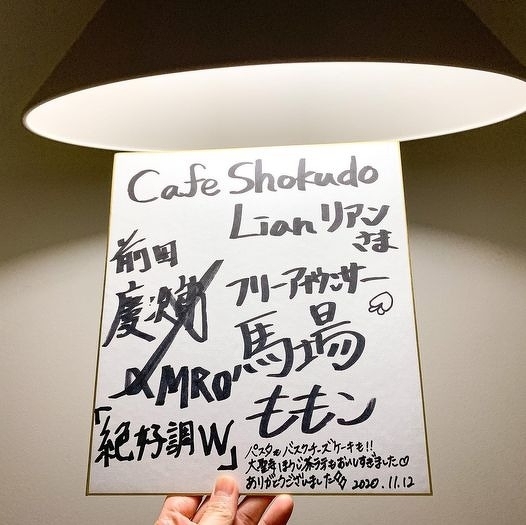 Cafe Shokudo
Lian リアン
さま
フリーアナウンサー
馬場
ももこ
前田
慶次
MRO
「絶好調W」
パスタもバスクチーズケーキも!!
大聖寺ほうじ茶ラテもおいしすぎました♡
ありがとうございました
2020.11.12